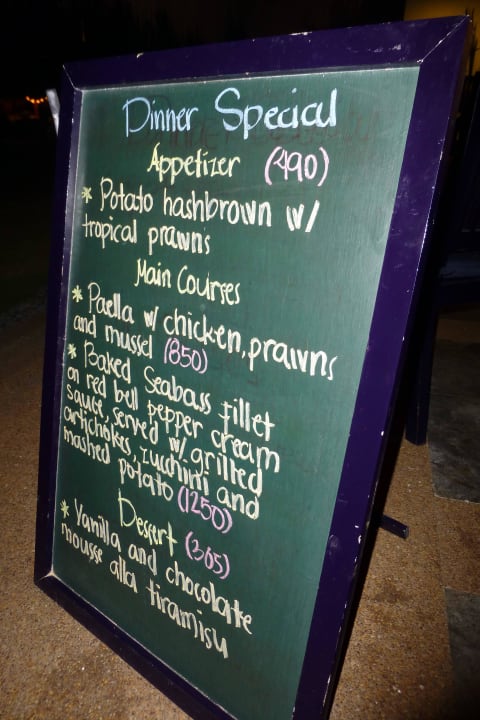 Dinner Special
Appetizer (490)
* Potato hashbrown w/
tropical prawns
Main Courses
* Paella w/ chicken, prawns
and mussel (850)
* Baked Seabass fillet
on red bell pepper cream
sauce, served w/ grilled
artichokes, zucchini and
mashed potato (1250)
Dessert (365)
* Vanilla and chocolate
mousse alla tiramisu